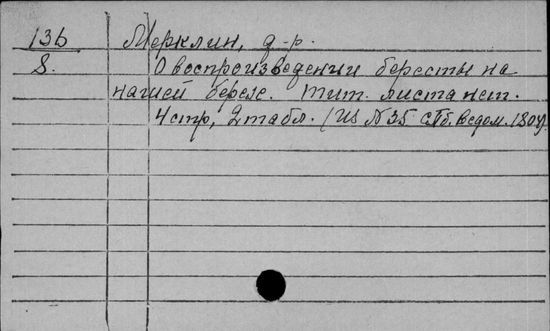 136 Мерклин, д-р.
8. О воспроизведении бересты на
нашей березе. Тит. листа нет.
4 стр, 2 табл. (Из N 35 СПб. Ведом.